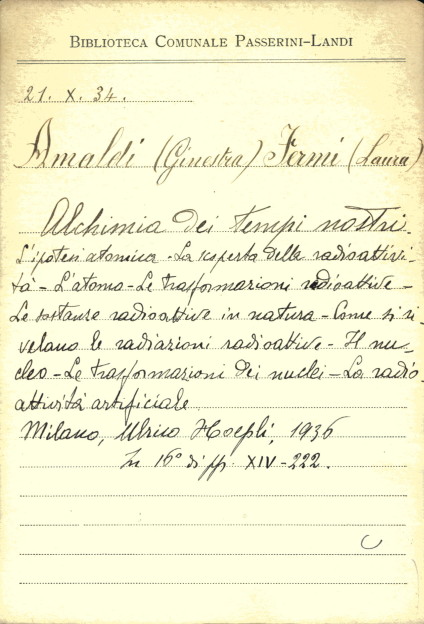 BIBLIOTECA COMUNALE PASSERINI-LANDI
21. X. 34.
Amaldi (Ginestra) Fermi (Laura)
Alchimia dei tempi nostri.
L'ipotesi atomica - La scoperta delle radioattivi-
tà - L'atomo - Le trasformazioni radioattive -
Le sostanze radioattive in natura - Come si ri-
velano le radiazioni radioattive - Il nu-
cleo - Le trasformazioni dei nuclei - La radio-
attività artificiale
Milano, Ulrico Hoepli, 1936
In 16° di pp. XIV-222.